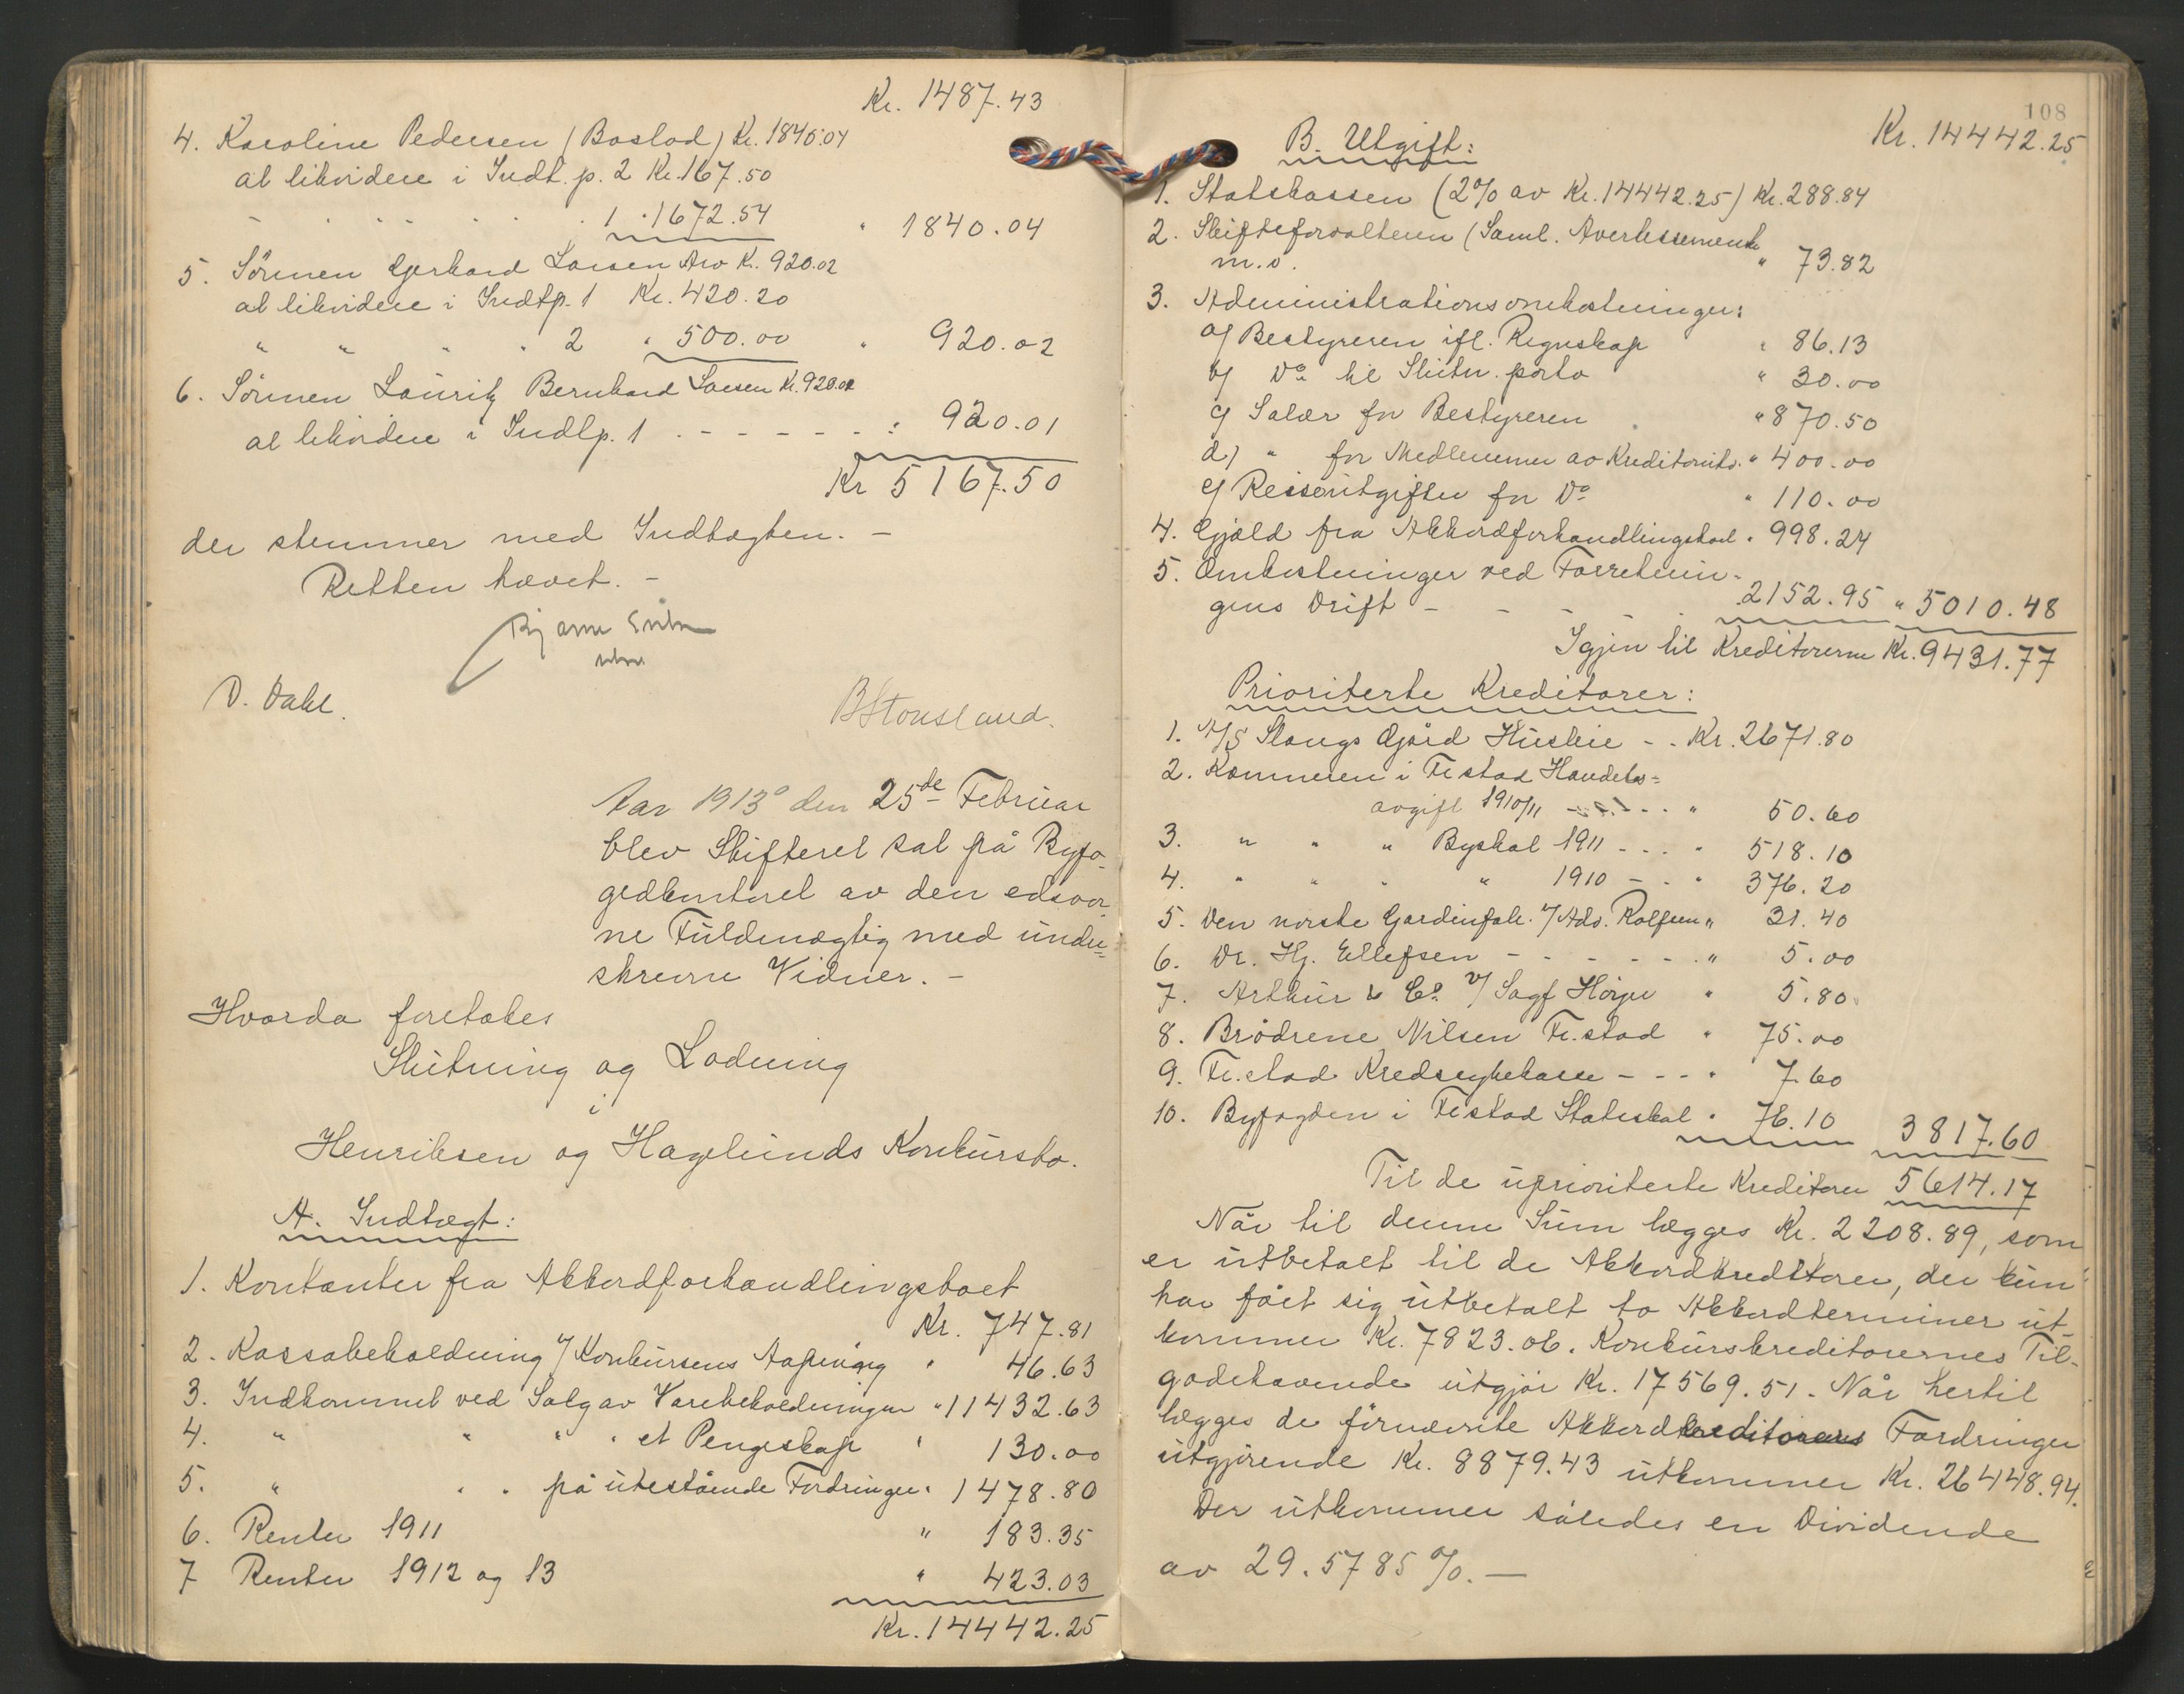 Kr. 1487.43
4. Karoline Pedersen (Boslod) Kr. 1840.04
at likvidere i Indt. p. 2 Kr. 167.50
- " " " " " 1 " 1672.54 " 1840.04
5. Sönnen Gerhard Larsen Arv Kr. 920.02
at likvidere i Indtp. 1 Kr. 420.20
" " " " 2 " 500.00 " 920.02
6. Sönnen Lauritz Bernhard Larsen Kr. 920.01
at likvidere i Indtp. 1 - - - - - : 920.01
Kr 5167.50
der stemmer med Indtægten. -
Retten hævet. -
Bjarne
D. Dahl.
BStousland.
Aar 1913 den 25de Februar
blev Skifteret sat på Byfo-
gedkontoret av den edsvor-
ne Fuldmægtig med under-
skrevne Vidner. -
Hvorda foretoges
Slutning og Lodning
i
Henriksen og Hagelunds Konkursbo.
A. Indtægt:
1. Kontanter fra Akkordforhandlingsboet
Kr. 747.81
2. Kassabeholdning v/ Konkursens Aapning " 46.63
3. Indkommet ved Salg av Varebeholdningen " 11432.63
4. " " " " et Pengeskap " 130.00
5. " " " på utestående Fordringer " 1478.80
6. Renter 1911 " 183.35
7 Renter 1912 og 13 " 423.03
Kr. 14442.25
108
Kr. 14442.25
B. Utgift:
1. Statskassen (2% av Kr. 14442.25) Kr. 288.84
2. Skifteforvalteren (Saml. Avertissements
m.v. " 73.82
3. Administrationsomkostninger:
a) Bestyreren ifl. Regnskap " 86.13
b) Do til Slutn. porto " 30.00
c) Salær for Bestyreren " 870.50
d) " for Medlemmer av Kreditorutv. " 400.00
e) Reiseutgifter for Do " 110.00
4. Gjæld fra Akkordforhandlingsboet " 998.24
5. Omkostninger ved Forretnin-
gens Drift - - - - 2152.95 " 5010.48
Igjen til Kreditorerne Kr. 9431.77
Prioriterte Kreditorer:
1. A/S Stangs Gjård Husleie - - Kr. 2671.80
2. Kæmneren i Fr.stad Handels-
avgift 1910/11 - - - - " 50.60
3. " " " Byskat 1911 - - - " 518.10
4. " " " " 1910 - - " 376.20
5. Den norske Gardinfabr. v/ Adv. Rolfsen " 31.40
6. Dr. Hj. Ellefsen - - - - - - " 5.00
7. Arthur & Co. v/ Sagf Hörye " 5.80
8. Brödrene Nilsen Fr.stad " 75.00
9. Fr.stad Kredssykekasse - - - " 7.60
10. Byfogden i Fr.stad Statsskat " 76.10 3817.60
Til de uprioriterte Kreditorer 5614.17
Når til denne Sum lægges Kr. 2208.89, som
er utbetalt til de Akkordkreditorer, der kun
har fået sig utbetalt to Akkordterminer ut-
kommer Kr. 7823.06. Konkurskreditorernes Til-
godehavende utgjör Kr. 17569.51. Når hertil
lægges de förnævnte Akkordkreditorers Fordringer
utgjörende Kr. 8879.43 utkommer Kr. 26448.94.
Der utkommer således en Dividende
av 29.5785 %. -